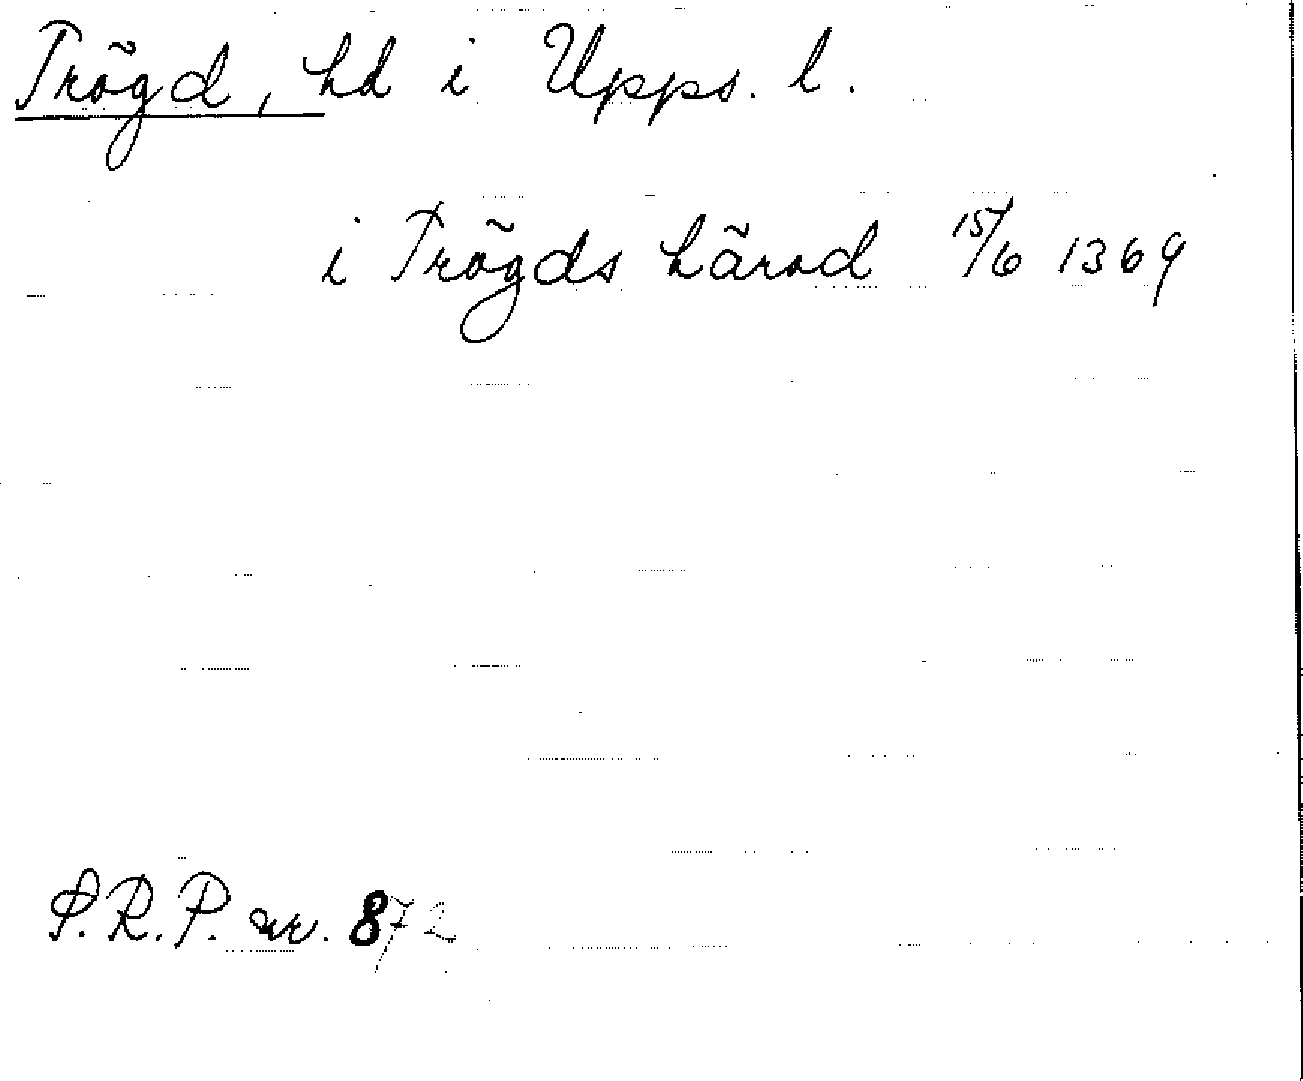 Trögd, hd i Upps. l.
i Trögds härad 15/6 1369
S.R.P. nr. 872